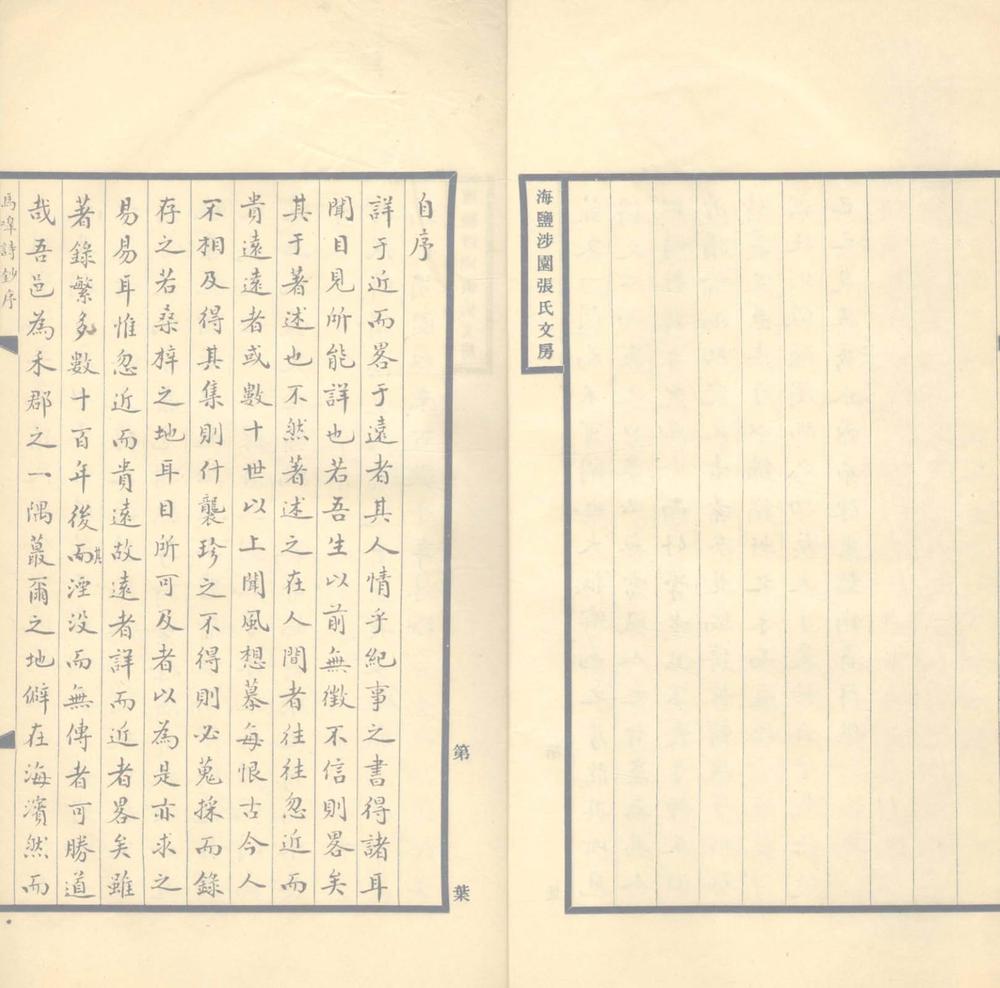 海鹽涉園張氏文房
第 葉
自序
詳于近而畧于遠者其人情乎紀事之書得諸耳
聞目見所能詳也若吾生以前無徵不信則畧矣
其于著述也不然著述之在人間者往往忽近而
貴遠遠者或數十世以上聞風想慕每恨古今人
不相及得其集則什襲珍之不得則必蒐採而錄
存之若桑梓之地耳目所可及者以為是亦求之
易易耳惟忽近而貴遠故遠者詳而近者畧矣雖
著錄繁多數十百年後而其湮没而無傳者可勝道
哉吾邑為禾郡之一隅蕞爾之地僻在海濱然而
馬嘷詩鈔序